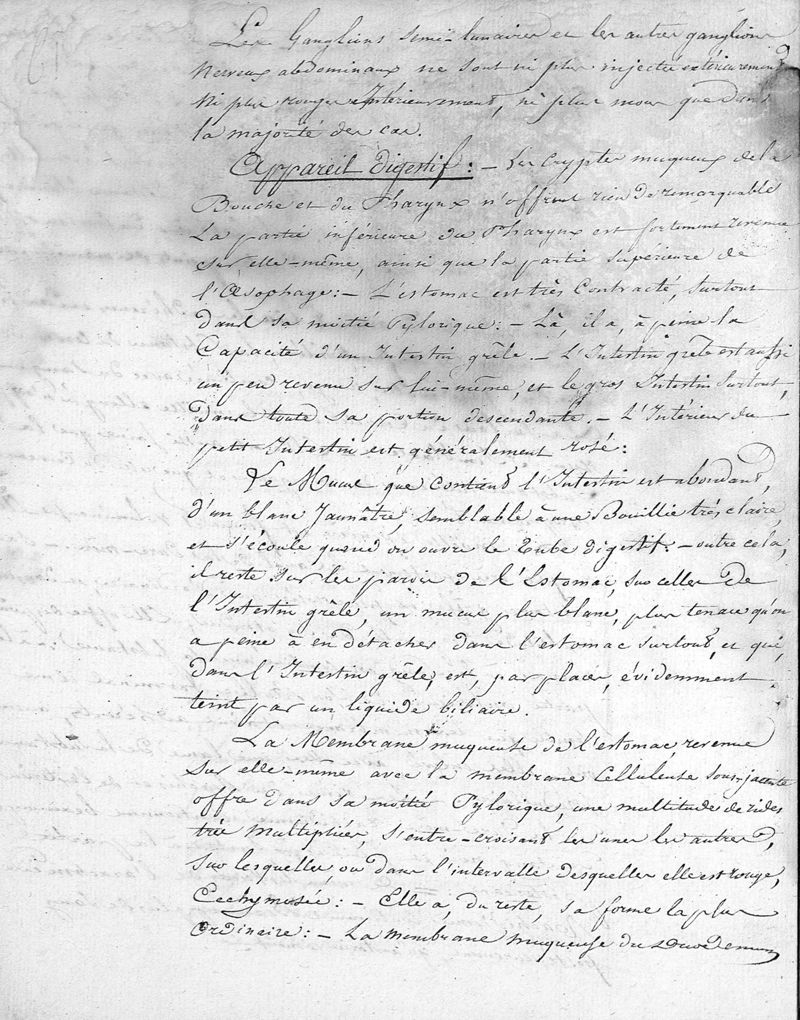 Les Ganglions semi-lunaires et les autres ganglions
Nerveux abdominaux ne sont ni plus injectés extérieurement
Ni plus rouges Intérieurement, ni plus mous que dans
la majorité des cas.
Appareil Digestif : – Les Cryptes muqueux de la
Bouche et du Pharynx n'offrent rien de remarquable
La partie inférieure du Pharynx est fortement revenue
sur elle-même, ainsi que la partie supérieure de
l'Œsophage : – L'estomac est très Contracté, surtout
dans sa moitié Pylorique : – Là, il a, à peine la
Capacité d'un Intestin grêle. – L'Intestin grêle est aussi
un peu revenu sur lui-même, et le gros Intestin surtout,
dans toute sa portion descendante. – L'Intérieur du
petit Intestin est généralement rosé :
Le Mucus que contient l'Intestin est abondant,
d'un blanc Jaunâtre, semblable à une Bouillie très claire,
et s'écoule quand on ouvre le Tube digestif. – outre cela,
il reste sur les parois de l'Estomac, sur celles De
l'Intestin grêle, un mucus plus blanc, plus tenace qu'on
a peine à en détacher dans l'estomac surtout, et qui,
dans l'Intestin grêle, est, par places, évidemment
teint par un liquide biliaire.
La Membrane muqueuse de l'estomac, revenue
sur elle-même avec la membrane Celluleuse sous-jacente
offre dans sa moitié Pylorique, une multitude de rides
très multipliées, s'entre-croisant les unes les autres,
sur lesquelles, ou dans l'intervalle desquelles elle est rouge,
Ecchymosée : – Elle a, du reste, sa forme la plus
Ordinaire : – La membrane muqueuse du Duodenum